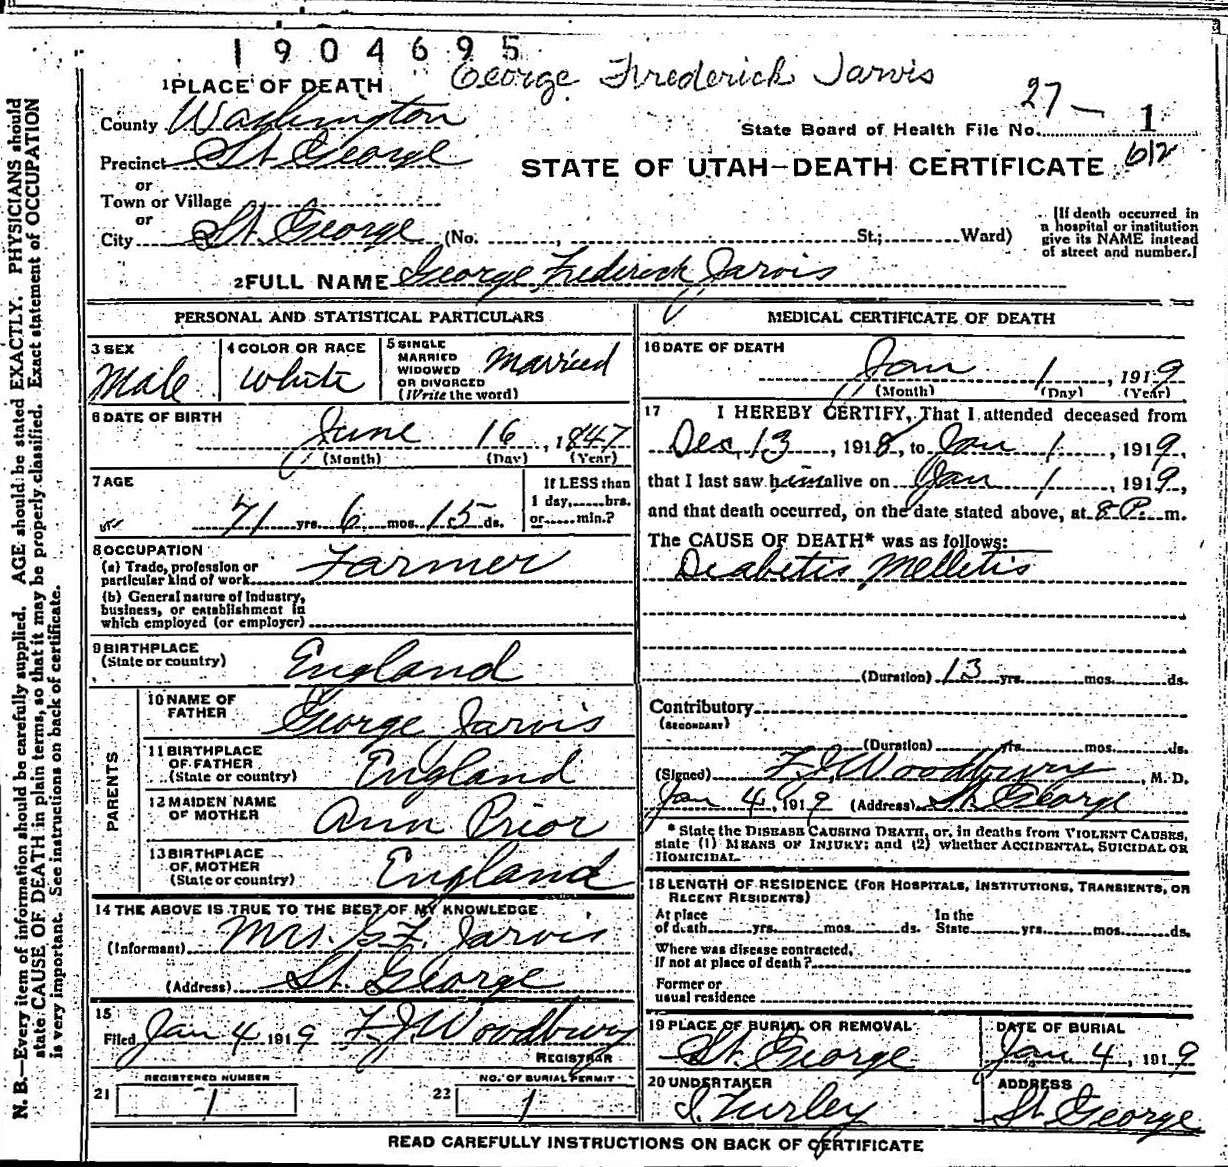 1904695
George Frederick Jarvis
1 PLACE OF DEATH
27 —
County Washington
State Board of Health File No. 1
Precinct St. George
612
STATE OF UTAH—DEATH CERTIFICATE
or
Town or Village
or
City St. George (No. , St.; Ward)
[If death occurred in
a hospital or institution
give its NAME instead
of street and number.]
2 FULL NAME George Frederick Jarvis
PERSONAL AND STATISTICAL PARTICULARS
3 SEX
Male
4 COLOR OR RACE
White
5 SINGLE
MARRIED
WIDOWED
OR DIVORCED
(Write the word)
Married
6 DATE OF BIRTH
June 16, 1847
(Month) (Day) (Year)
7 AGE
71 yrs. 6 mos. 15 ds.
If LESS than
1 day, hrs.
or min.?
8 OCCUPATION
(a) Trade, profession or
particular kind of work
Farmer
(b) General nature of Industry,
business, or establishment in
which employed (or employer)
9 BIRTHPLACE
(State or country)
England
PARENTS
10 NAME OF
FATHER
George Jarvis
11 BIRTHPLACE
OF FATHER
(State or country)
England
12 MAIDEN NAME
OF MOTHER
Ann Prior
13 BIRTHPLACE
OF MOTHER
(State or country)
England
14 THE ABOVE IS TRUE TO THE BEST OF MY KNOWLEDGE
(Informant) Mrs. G.F. Jarvis
(Address) St. George
15
Filed Jan 4 1919 F J Woodbury
REGISTRAR
21
REGISTERED NUMBER
1
22
NO. OF BURIAL PERMIT
1
MEDICAL CERTIFICATE OF DEATH
16 DATE OF DEATH
Jan 1, 1919
(Month) (Day) (Year)
17 I HEREBY CERTIFY, That I attended deceased from
Dec. 13, 1918, to Jan 1, 1919,
that I last saw him alive on Jan 1, 1919,
and that death occurred, on the date stated above, at 8 P. m.
The CAUSE OF DEATH* was as follows:
Diabetis Melletis
(Duration) 13 yrs. mos. ds.
Contributory
(SECONDARY)
(Duration) yrs. mos. ds.
(Signed) F J Woodbury, M. D.
Jan 4, 1919 (Address) St. George
* State the DISEASE CAUSING DEATH, or, in deaths from VIOLENT CAUSES,
state (1) MEANS OF INJURY; and (2) whether ACCIDENTAL, SUICIDAL OR
HOMICIDAL.
18 LENGTH OF RESIDENCE (FOR HOSPITALS, INSTITUTIONS, TRANSIENTS, OR
RECENT RESIDENTS)
At place
of death yrs. mos. ds.
In the
State yrs. mos. ds.
Where was disease contracted,
If not at place of death?
Former or
usual residence
19 PLACE OF BURIAL OR REMOVAL
St. George
DATE OF BURIAL
Jan 4, 1919
20 UNDERTAKER
I. Turley
ADDRESS
St George
READ CAREFULLY INSTRUCTIONS ON BACK OF CERTIFICATE
N. B.—Every item of information should be carefully supplied. AGE should be stated EXACTLY. PHYSICIANS should
state CAUSE OF DEATH in plain terms, so that it may be properly classified. Exact statement of OCCUPATION
is very important. See instructions on back of certificate.